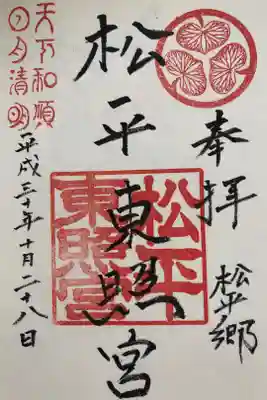 奉拝
松平郷
松平東照宮
松平
東照宮
天下和順
日月清明
平成三十年十月二十八日